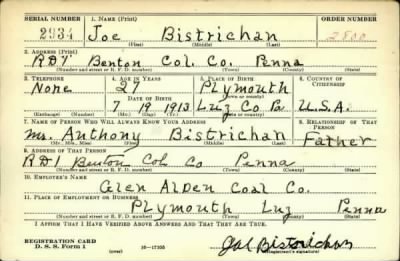 SERIAL NUMBER 1. NAME (Print) ORDER NUMBER
2934 Joe Bistrichan 2800
(First) (Middle) (Last)
2. ADDRESS (Print)
RD1 Benton Col. Co. Penna
(Number and street or R. F. D. number) (Town) (County) (State)
3. TELEPHONE 4. AGE IN YEARS 5. PLACE OF BIRTH 6. COUNTRY OF CITIZENSHIP
None 27 Plymouth
DATE OF BIRTH (Town or county)
7 19 1913 Luz Co Pa U.S.A.
(Exchange) (Number) (Mo.) (Day) (Yr.) (State or country)
7. NAME OF PERSON WHO WILL ALWAYS KNOW YOUR ADDRESS 8. RELATIONSHIP OF THAT PERSON
Mr. Anthony Bistrichan Father
(Mr., Mrs., Miss) (First) (Middle) (Last)
9. ADDRESS OF THAT PERSON
RD1 Benton Col Co Penna
(Number and street or R. F. D. number) (Town) (County) (State)
10. EMPLOYER'S NAME
Glen Alden Coal Co.
11. PLACE OF EMPLOYMENT OR BUSINESS
Plymouth Luz Penna
(Number and street or R. F. D. number) (Town) (County) (State)
I AFFIRM THAT I HAVE VERIFIED ABOVE ANSWERS AND THAT THEY ARE TRUE.
REGISTRATION CARD
D. S. S. Form 1 (over) 16—17105 Joe Bistrichan
(Registrant's signature)